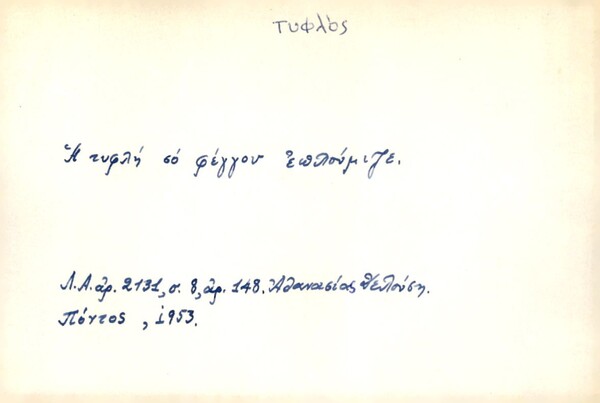 τυφλός
Ἡ τυφλή σό φέγγον ἐπλούμιζε.
Λ.Α. ἀρ. 2131, σ. 8, ἀρ. 148. Ἀθανασίας
Πόντος, 1953.